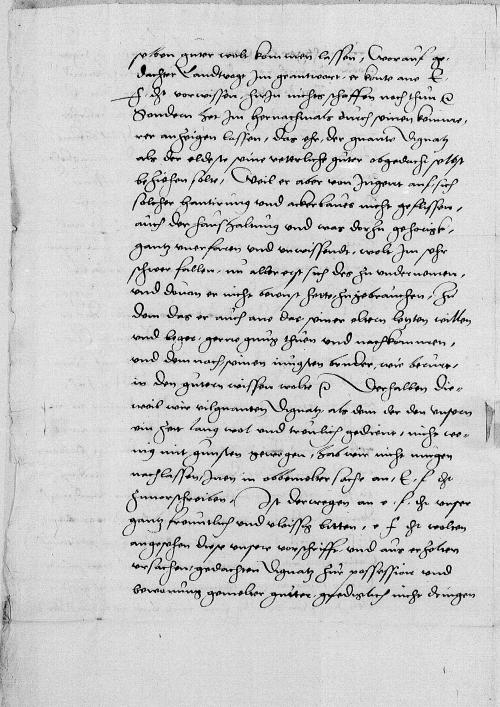 güter wolt kommen lassen, Worauf ge-
dachter Landtvogt Im geantwort, er konte ane E
f. Ht vorwissen hirin nichts schaffen noch thun
Sondern het Im hernachmals durch einen komme-
rer anzeigen lassen, das ehr, der gnante Ignatz
als der eldeste seine vetterliche güter obgedacht selbst
beziehen solte, Weil er aber von Jugent auf sich
solcher hantirung und ackerbaues nicht geflissen,
auch der haushaltung und was dorzu gehorigk,
gantz unerfaren und unwissendt, wolt Im sehr
schwer fallen, nu aller erst sich des zu undernemen,
und dovan er nicht bewust hette, zugebrauchen, zu
dem das er auch ane das, seiner eltern letzten willen
und leger, gerne gnug thuen und nachkommen,
und dem nach, seinen iungsten bruder, wie berurt,
in den gütern wissen wolte Derhalben die-
weil wir vilgnanten Ignatz, als dem der den unsern
ein zeit lang wol und treulich gedient, nicht we-
nig mit gunsten gewogen, hab wir nicht mugen
nachlassen, Inen in obbemelter sache an, E. f. Ht
zuvorschreiben, Ist derwegen an e. f. Ht unser
gantz freuntlich und vleissig bitten, e f Ht wolten
angesehen diese unsere vorschrifft, und aus erholten
ursachen, gedachten Ignatz zur possession und
bewonung gemelter güter, gnediglich nicht dringen